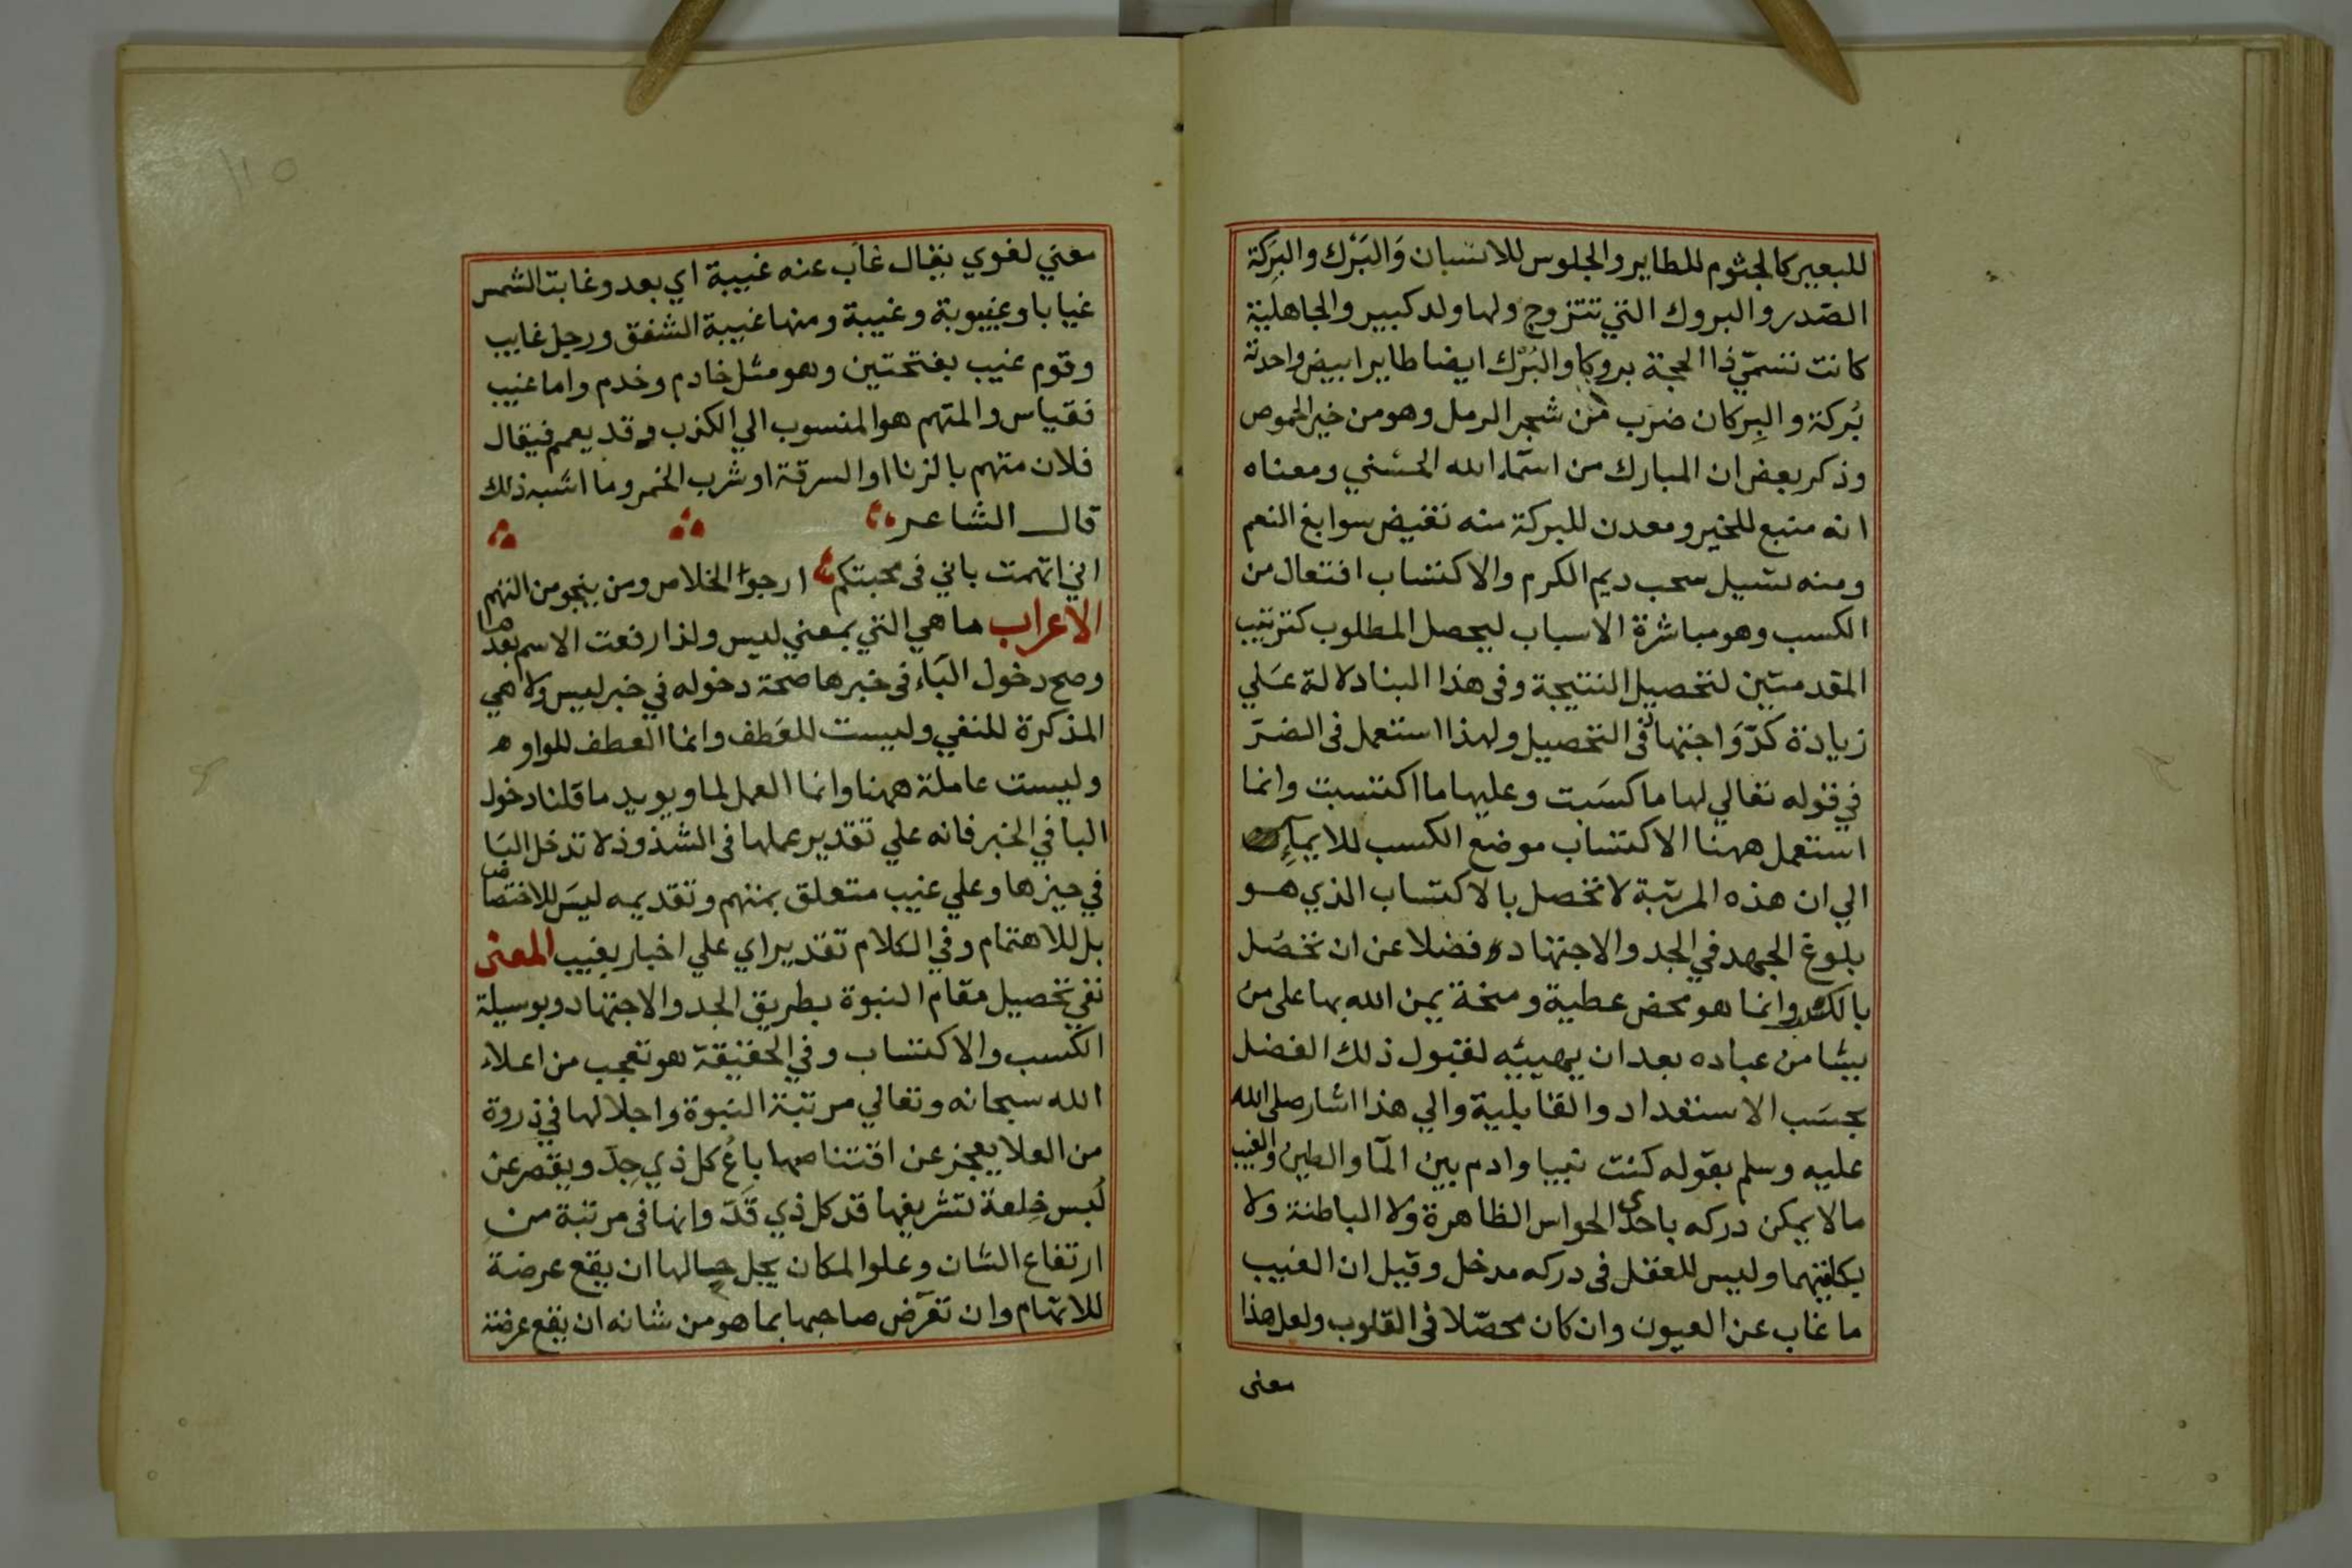 للبعير كالجثوم للطاير والجلوس للانسان وَالبَرْك والبَرِكة
الصّدر والبروك التي تتزوج ولها ولد كبير والجاهلية
كانت تسمّي ذا الحجة بروكا والبُرْك ايضا طاير ابيض واحدته
بُركة والبِركان ضرب من شجر الرمل وهو من خير الحموض
وذكر بعض ان المبارك من اسمآء الله الحسني ومعناه
انه منبع للخير ومعدن للبركة منه تفيض سوابغ النعم
ومنه تسيل سحب ديم الكرم والاكتساب افتعال من
الكسب وهو مباشرة الاسباب ليحصل المطلوب كترتيب
المقدمتين لتحصيل النتيجة وفى هذا البنا دلالة عَلي
زيادة كدّ وَاجتهاد فى التحصيل ولهذا استعمل فى الضرّ
في قوله تعالي لها ما كسَبت وعليها ما اكتسبت وانما
استعمل ههنا الاكتساب موضع الكسب للايمآء
الي ان هذه المرتبة لا تحصل بالاكتساب الذي هو
بلوغ الجهد في الجد والاجتهاد فضلا عن ان تحصُل
بالكد وانما هو محض عطية ومنحة يمن الله بها على من
يشا من عباده بعد ان يهييه لقبول ذلك الفضل
بحسَب الاستعداد والقابلية والي هذا اشار صلى الله
عليه وسلم بقوله كنت نبيا وادم بين المآ والطين والغيب
ما لا يمكن دركه باحدى الحواس الظاهرة ولا الباطنة ولا
بكلتيهما وليس للعقل فى دركه مدخل وقيل ان الغيب
ما غاب عن العيون وان كان محصّلا فى القلوب ولعل هذا
معنى
معني لغوي يقال غاب عنه غيبة اي بعد وغابت الشمس
غيابا وغيبوبة وغيبة ومنها غيبة الشفق ورجل غايب
وقوم غيب بفتحتين وهو مثل خادم وخدم واما غيب
فقياس والمتهم هو المنسوب الي الكذب وقد يعمم فيقال
فلان متهم بالزنا او السرقة او شرب الخمر وما اشبه ذلك
قال الشاعر
اني اتهمت باني فى محبتكم ارجوا الخلاص ومن ينجو من التهم
الاعراب ما هي التي بمعني ليس ولذا رفعت الاسم بعدها
وصح دخول البَاء فى خبرها صحة دخوله في خبر ليس ولا هي
المذكرة للنفي وليست للعَطف وانما العطف للواو
وليست عاملة ههنا وانما العمل لما ويويد ما قلنا دخول
البا في الخبر فانه علي تقدير عملها فى الشذوذ لا تدخل البَا
في حيزها وعلي غيب متعلق بمتهم وتقديمه ليسَ للاختصاص
بل للاهتمام وفي الكلام تقدير اي علي اخبار بغيب المعنى
نفي تحصيل مقام النبوة بطريق الجد والاجتهاد وبوسيلة
الكسب والاكتساب وفي الحقيقة هو تعجب من اعلاء
الله سبحانه وتعالي مرتبة النبوة واجلالها في ذروة
من العلا يعجز عن اقتناصها باعُ كل ذي جِدّ ويقصر عن
لُبس خِلعة تشريفها قد كل ذي قَدّ وانها فى مرتبة من
ارتفاع الشان وعلو المكان يجل حيالها ان يقع عرضة
للاتهام وان تعرّض صاحبها بما هو من شانه ان يقع عرضة